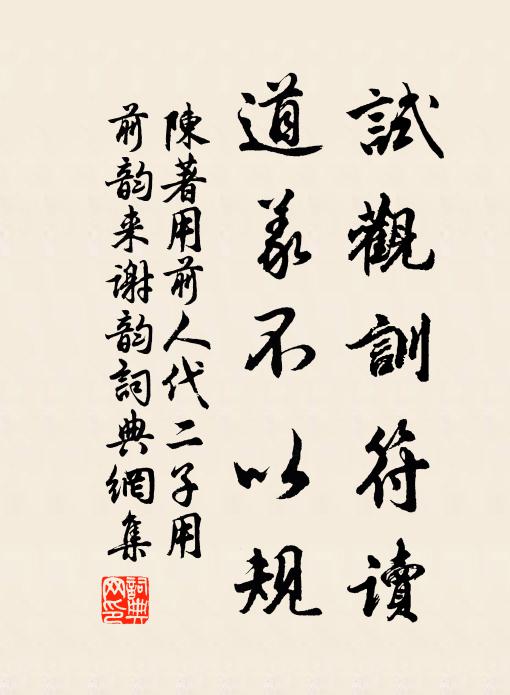 試觀訓符讀
道義不以規
陳著用前人代二子用
前韵来謝韵詞典網集
詞典网印